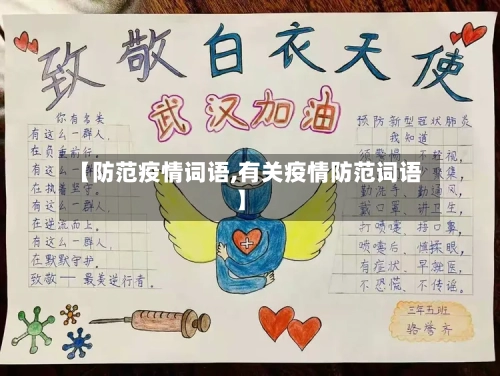 致敬白衣天使
武汉加油
你有名类
有这么一群人，
在负重前行。
有这么一群人，
在执着坚守。
有这么一群人，
在逆流而上。
有这么一群人，
在默默守护。
致敬——最美逆行者。
【防范疫情词语,有关疫情防范词语
】
预防新型冠状肺炎
我知道
勤洗手、勤通风，
戴口罩、讲卫生，
打喷嚏、捂口鼻，
喷嚏后、慎揉眼，
有症状、早就医，
不恐慌、不传谣。
三年五班